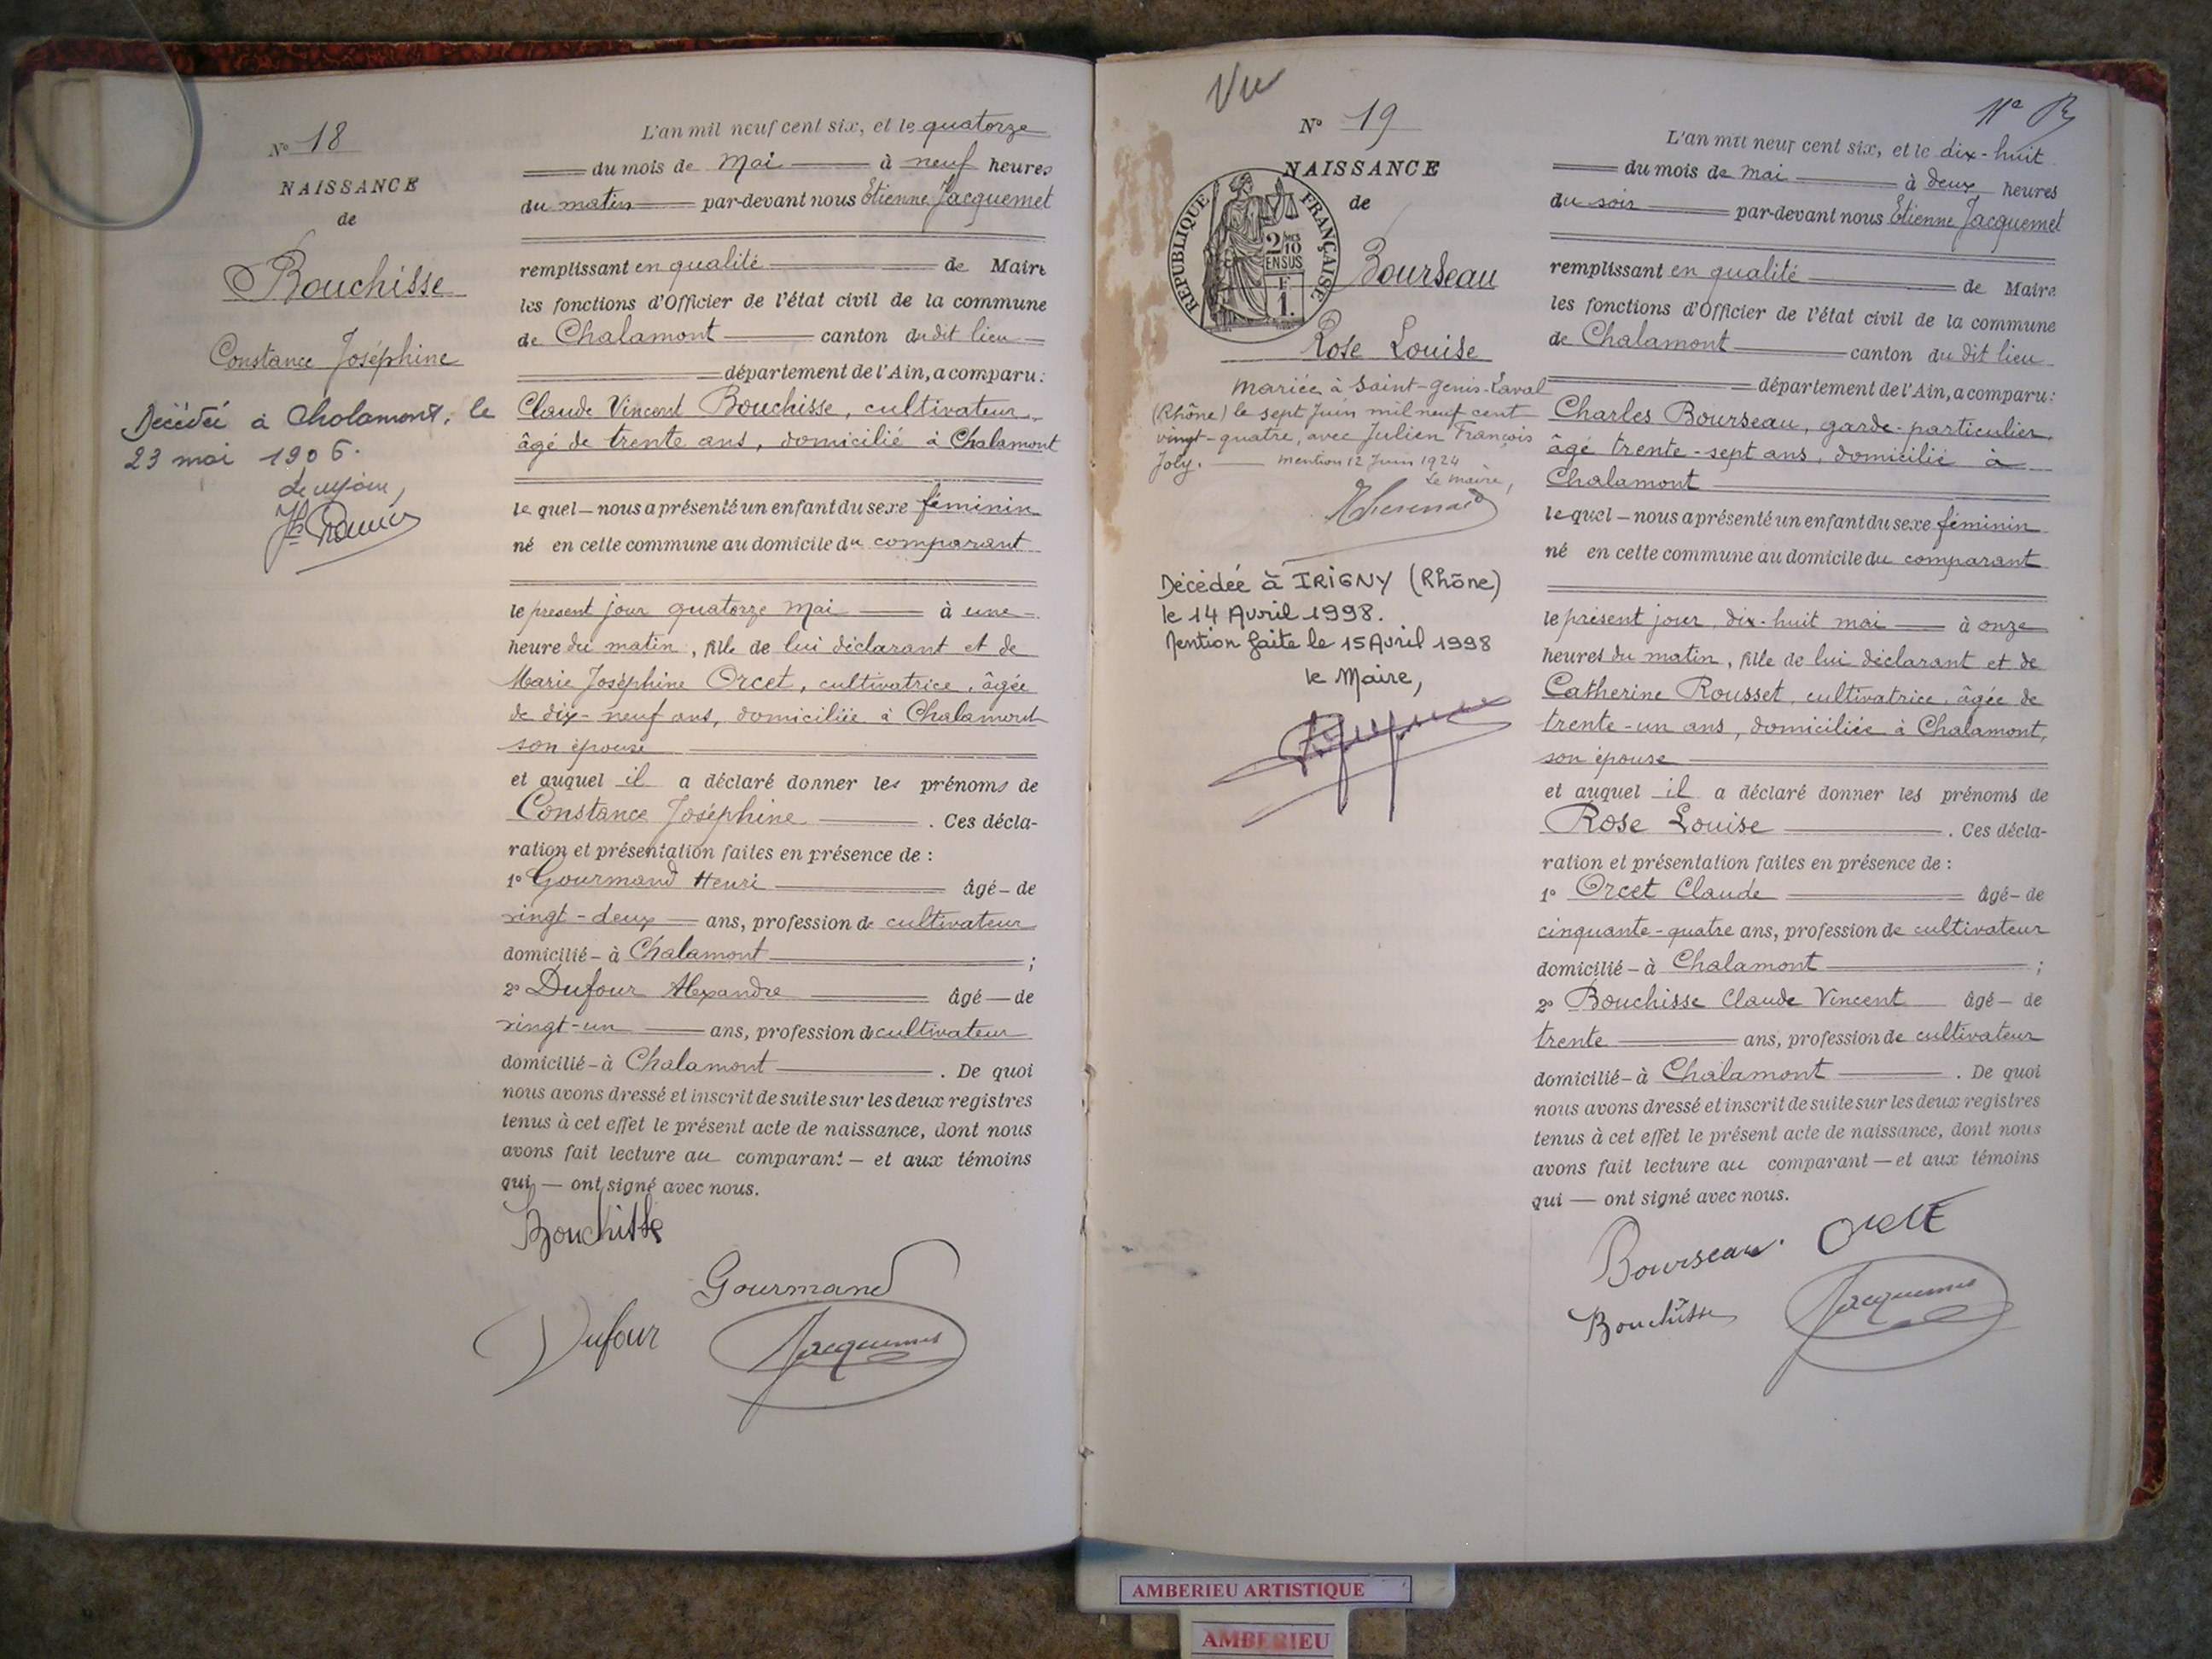 N° 18
NAISSANCE
de
Bouchisse
Constance Joséphine
Décédée à Chalamont, le
23 mai 1906.
L'an mil neuf cent six, et le quatorze
du mois de Mai à neuf heures
du matin par-devant nous Etienne Jacquemet
remplissant en qualité de Maire
les fonctions d'Officier de l'état civil de la commune
de Chalamont canton du dit lieu
département de l'Ain, a comparu :
Claude Vincent Bouchisse, cultivateur,
âgé de trente ans, domicilié à Chalamont
le quel – nous a présenté un enfant du sexe féminin
né en cette commune au domicile du comparant
le présent jour quatorze Mai à une
heure du matin, fille de lui déclarant et de
Marie Joséphine Orcet, cultivatrice, âgée
de dix-neuf ans, domiciliée à Chalamont
son épouse
et auquel il a déclaré donner les prénoms de
Constance Joséphine . Ces décla-
ration et présentation faites en présence de :
1° Gourmand Henri âgé – de
vingt-deux ans, profession de cultivateur
domicilié – à Chalamont ;
2° Dufour Alexandre âgé — de
vingt-un ans, profession de cultivateur
domicilié – à Chalamont . De quoi
nous avons dressé et inscrit de suite sur les deux registres
tenus à cet effet le présent acte de naissance, dont nous
avons fait lecture au comparant – et aux témoins
qui — ont signé avec nous.
Bouchisse
Gourmand
Dufour
Jacquemet
Vu
N° 19
NAISSANCE
de
REPUBLIQUE FRANÇAISE
2/10 MES
EN SUS
F
1.
Bourseau
Rose Louise
Mariée à Saint-Genis-Laval
(Rhône) le sept Juin mil neuf cent
vingt-quatre, avec Julien François
Joly. mention 12 Juin 1924
Le maire,
Décédée à IRIGNY (Rhône)
le 14 Avril 1998.
Mention faite le 15 Avril 1998
le Maire,
L'an mil neuf cent six, et le dix-huit
du mois de mai à deux heures
du soir par-devant nous Etienne Jacquemet
remplissant en qualité de Maire
les fonctions d'Officier de l'état civil de la commune
de Chalamont canton du dit lieu
département de l'Ain, a comparu :
Charles Bourseau, garde-particulier,
âgé trente-sept ans, domicilié à
Chalamont
le quel – nous a présenté un enfant du sexe féminin
né en cette commune au domicile du comparant
le présent jour, dix-huit mai à onze
heures du matin, fille de lui déclarant et de
Catherine Rousset, cultivatrice, âgée de
trente-un ans, domiciliée à Chalamont,
son épouse
et auquel il a déclaré donner les prénoms de
Rose Louise . Ces décla-
ration et présentation faites en présence de :
1° Orcet Claude âgé – de
cinquante-quatre ans, profession de cultivateur
domicilié – à Chalamont ;
2° Bouchisse Claude Vincent âgé – de
trente ans, profession de cultivateur
domicilié – à Chalamont . De quoi
nous avons dressé et inscrit de suite sur les deux registres
tenus à cet effet le présent acte de naissance, dont nous
avons fait lecture au comparant — et aux témoins
qui — ont signé avec nous.
Bourseau. Orcet
Bouchisse Jacquemet
AMBERIEU ARTISTIQUE
AMBERIEU